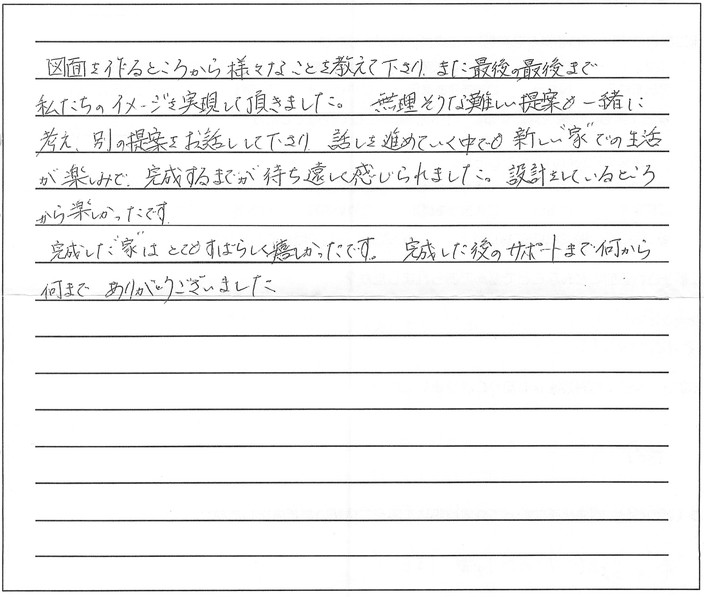 図面を作るところから様々なことを教えて下さり、また最後の最後まで
私たちのイメージを実現して頂きました。 無理そうな難しい提案も一緒に
考え、別の提案をお話しして下さり 話しを進めていく中でも 新しい"家"での生活
が楽しみで、完成するまでが待ち遠しく感じられました。設計をしているところ
から楽しかったです。
完成した"家"は とてもすばらしく嬉しかったです。 完成した後のサポートまで何から
何まで ありがとうございました